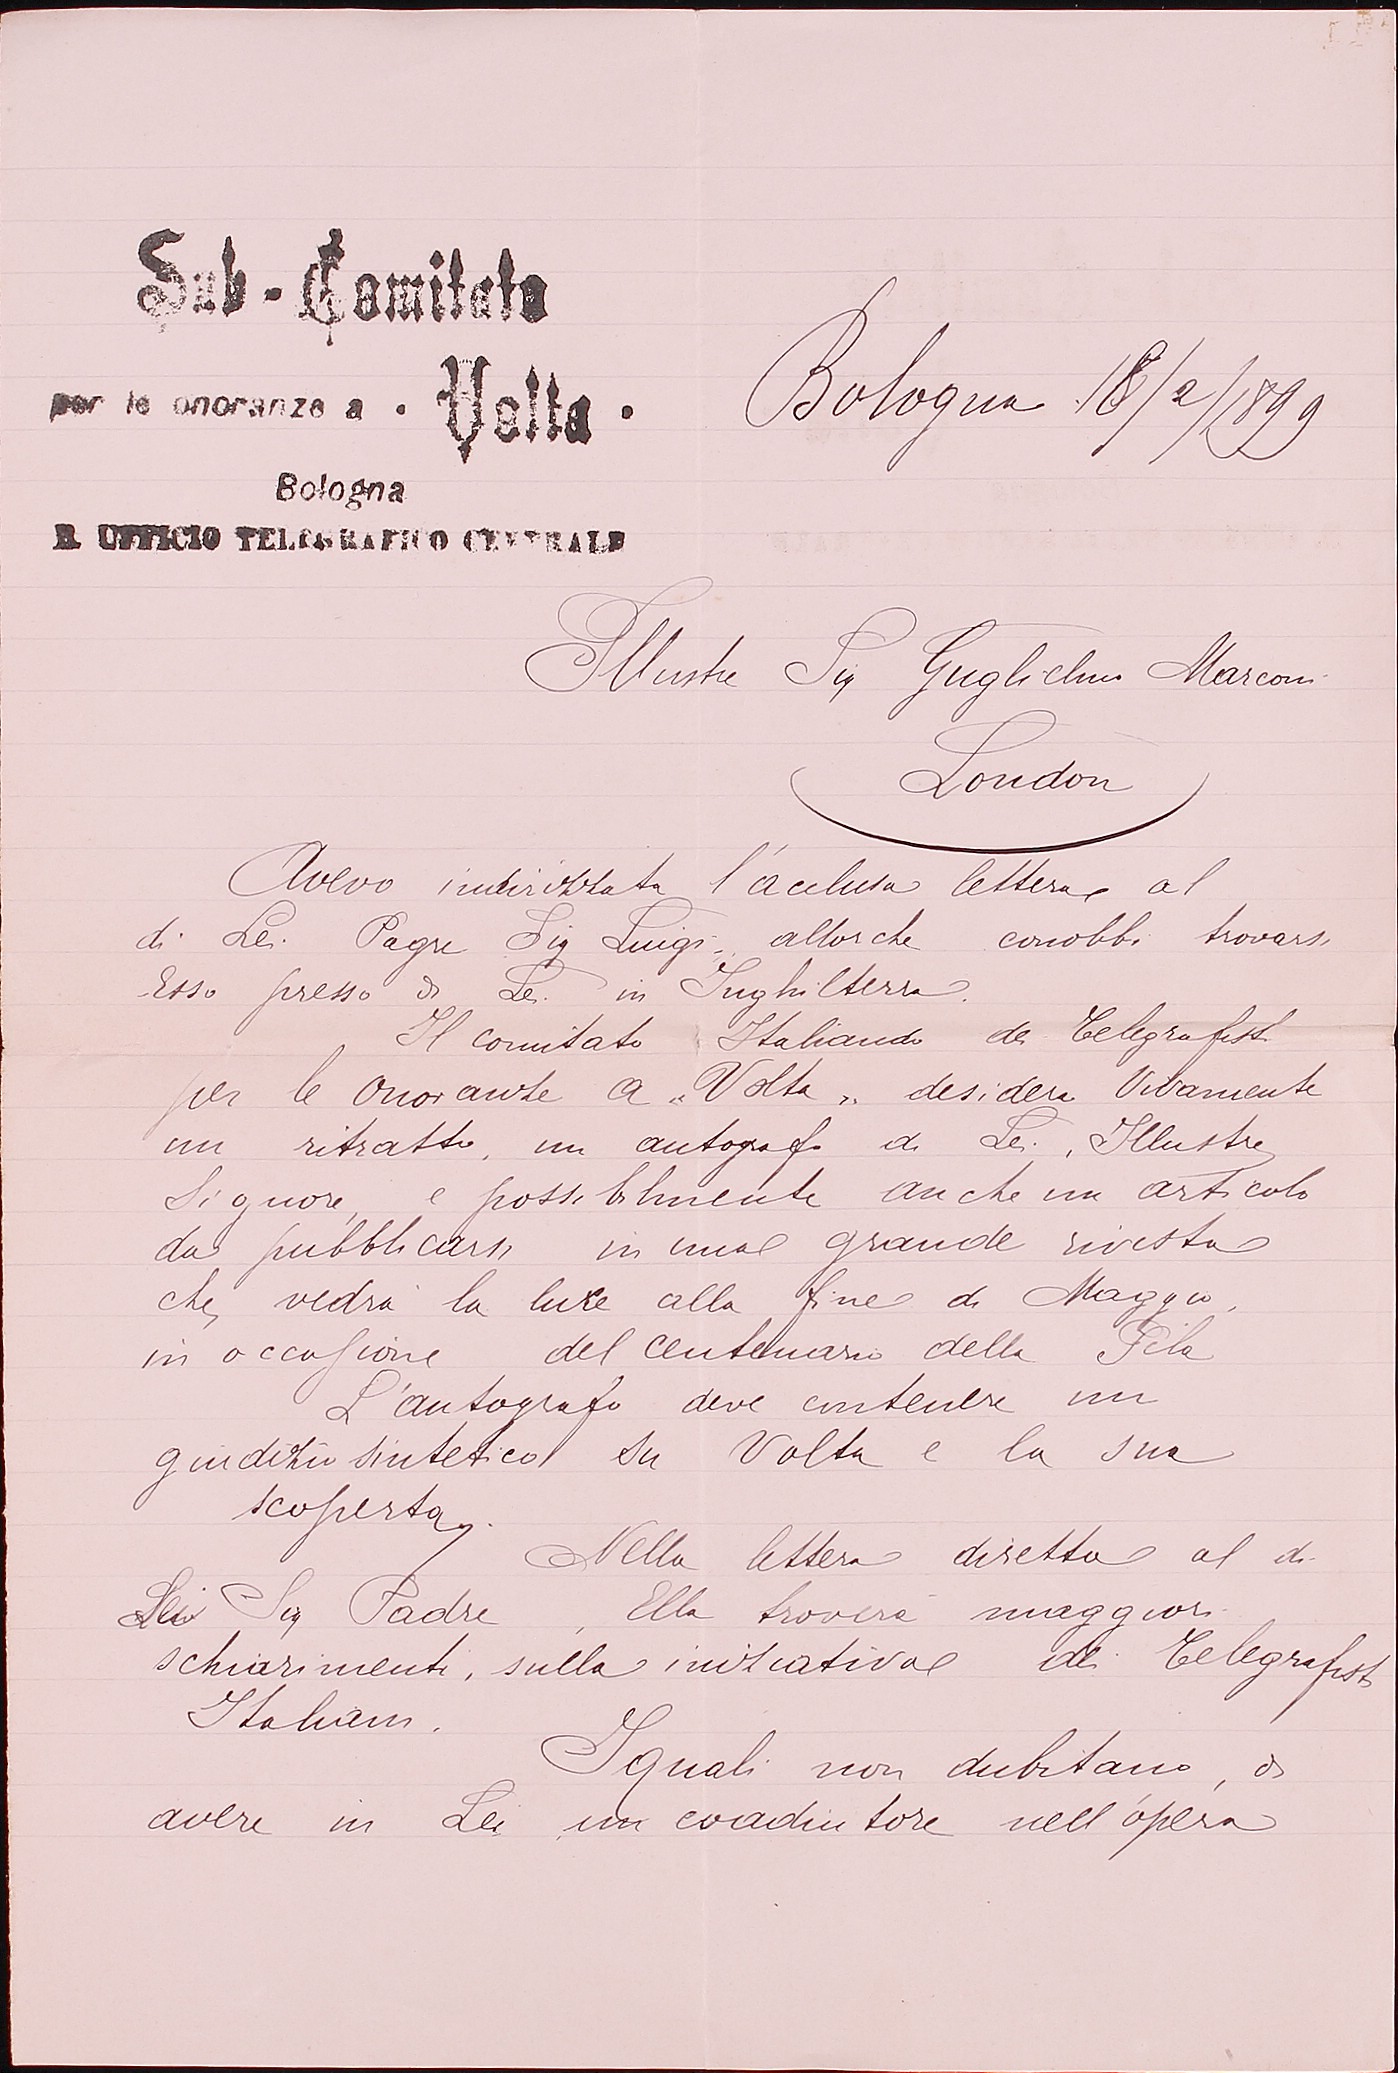 Sub-Comitato
per le onoranze a · Volta ·
Bologna
R. UFFICIO TELEGRAFICO CENTRALE
Bologna 18/2/1899
Illustre Sig Guglielmo Marconi
London
Avevo indirizzata l'acclusa lettera al
di Lei Pagre Sig Luigi, allorche conobbi trovarsi
Esso presso di Lei in Inghilterra.
Il comitato Italiando dei Telegrafisti
per le Onoranze a "Volta" desidera vivamente
un ritratto, un autografo di Lei, Illustre
Signore, e possibilmente anche un articolo
da pubblicarsi in una grande rivista
che vedrà la luce alla fine di Maggio,
in occasione del centenario della Pila
L'autografo deve contenere un
giudizio sintetico su Volta e la sua
scoperta.
Nella lettera diretta al di
Lei Sig Padre, Ella troverà maggiori
schiarimenti, sulla iniziativa dei Telegrafisti
Italiani.
I quali non dubitano, di
avere in Lei un coadiutore nell'opera